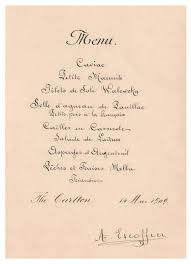 Menu.
Caviar
Petite Marmite
Filets de Sole Walewska
Selle d'agneau de Pauillac
Petits pois à la française
Cailles en Casserole
Salade de Laitues
Asperges d'Argenteuil
Pêches et Fraises Melba
Friandises
The Carlton
14 Mai 1909
A Escoffier